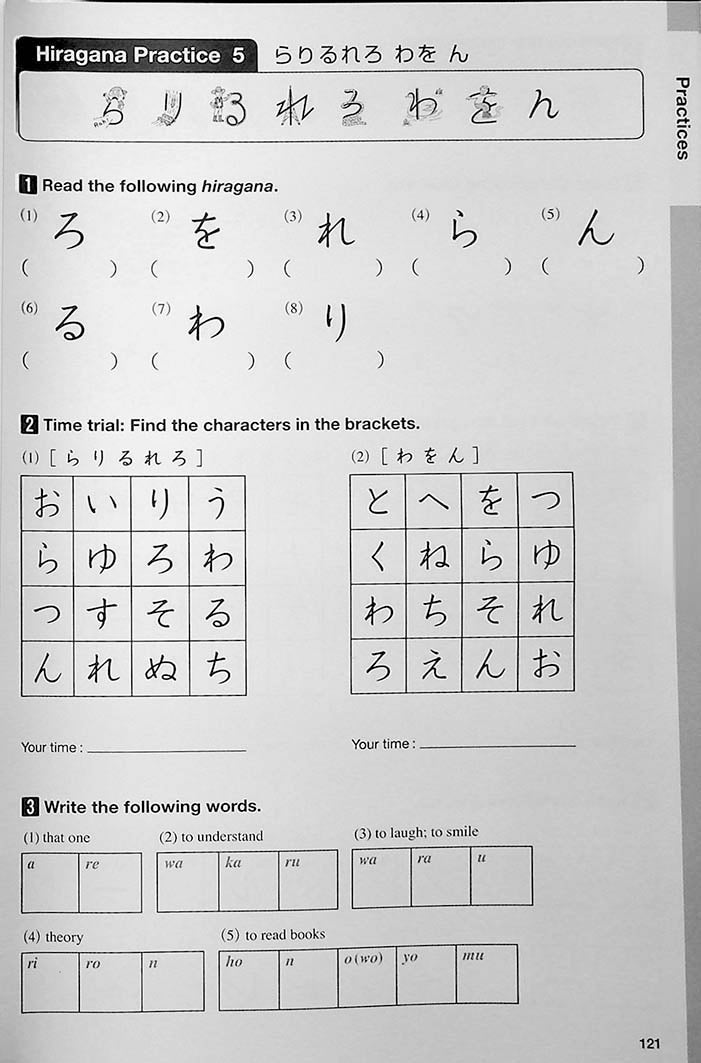 Hiragana Practice 5 らりるれろ わを ん
ら り る れ ろ わ を ん
Practices
1 Read the following hiragana.
(1) ろ (2) を (3) れ (4) ら (5) ん
( ) ( ) ( ) ( ) ( )
(6) る (7) わ (8) り
( ) ( ) ( )
2 Time trial: Find the characters in the brackets.
(1) [ ら り る れ ろ ]
お い り う
ら ゆ ろ わ
つ す そ る
ん れ ぬ ち
Your time :
(2) [ わ を ん ]
と へ を つ
く ね ら ゆ
わ ち そ れ
ろ え ん お
Your time :
3 Write the following words.
(1) that one (2) to understand (3) to laugh; to smile
a re wa ka ru wa ra u
(4) theory (5) to read books
ri ro n ho n o(wo) yo mu
121